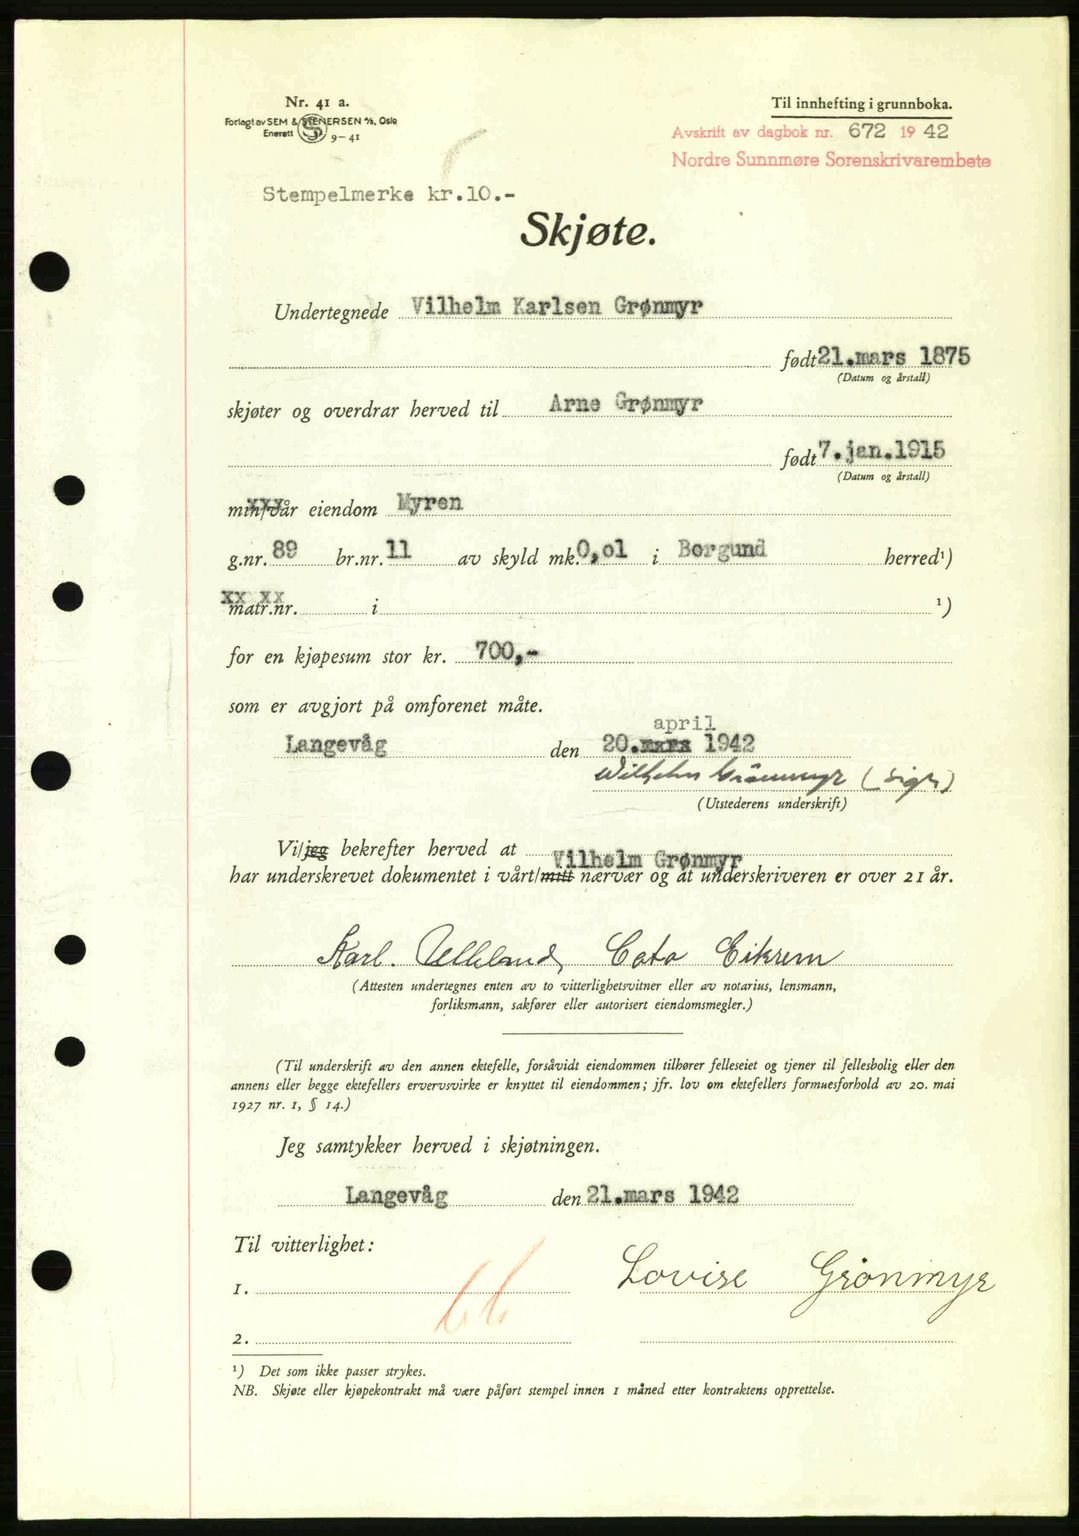 Nr. 41 a.
Forlagt av SEM & STENERSEN A/S, Oslo
Enerett 9-41
Til innhefting i grunnboka.
Avskrift av dagbok nr. 672 1942
Nordre Sunnmøre Sorenskrivarembete
Stempelmerke kr.10.-
Skjøte.
Undertegnede Vilhelm Karlsen Grønmyr
født 21.mars 1875
(Datum og årstall)
skjøter og overdrar herved til Arne Grønmyr
født 7.jan.1915
(Datum og årstall)
min/vår eiendom Myren
g.nr. 89 br.nr. 11 av skyld mk. 0,01 i Borgund herred¹)
matr.nr. i ¹)
for en kjøpesum stor kr. 700,-
som er avgjort på omforenet måte.
april
Langevåg den 20. mars 1942
Wilhelm Grönmyr (sign)
(Utstederens underskrift)
Vi/jeg bekrefter herved at Vilhelm Grønmyr
har underskrevet dokumentet i vårt/mitt nærvær og at underskriveren er over 21 år.
Karl. Cato Eikrem
(Attesten undertegnes enten av to vitterlighetsvitner eller av notarius, lensmann,
forliksmann, sakfører eller autorisert eiendomsmegler.)
(Til underskrift av den annen ektefelle, forsåvidt eiendommen tilhører felleseiet og tjener til fellesbolig eller den
annens eller begge ektefellers ervervsvirke er knyttet til eiendommen; jfr. lov om ektefellers formuesforhold av 20. mai
1927 nr. 1, § 14.)
Jeg samtykker herved i skjøtningen.
Langevåg den 21.mars 1942
Til vitterlighet:
Lovise Grönmyr
1.
66
2.
¹) Det som ikke passer strykes.
NB. Skjøte eller kjøpekontrakt må være påført stempel innen 1 måned etter kontraktens opprettelse.